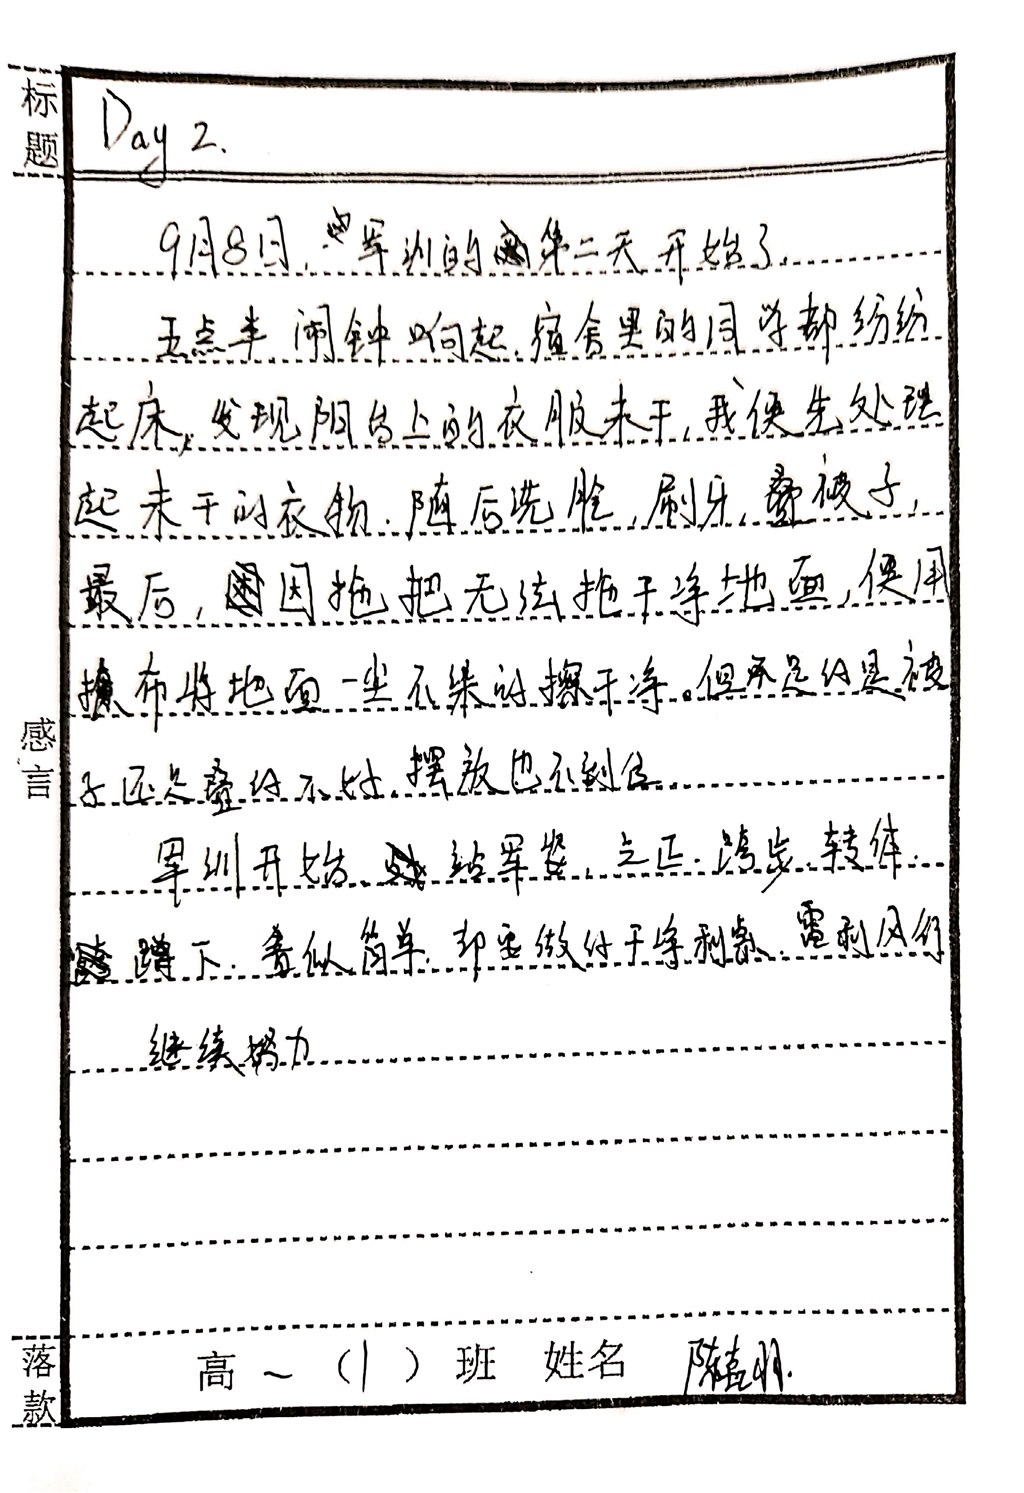 标题
Day 2.
9月8日,军训的第二天开始了.
五点半,闹钟响起,宿舍里的同学都纷纷
起床,发现阳台上的衣服未干,我便先处理
起未干的衣物.随后洗脸,刷牙,叠被子,
最后,因拖把无法拖干净地面,便用
抹布将地面一尘不染的擦干净。但不足的是被
子还是叠的不好,摆放也不到位.
感言
军训开始,站军姿,立正.跨步.转体.
蹲下.看似简单,却要做的干净利索.雷利风行
继续努力
落款
高一(1)班 姓名 陈嘉羽.